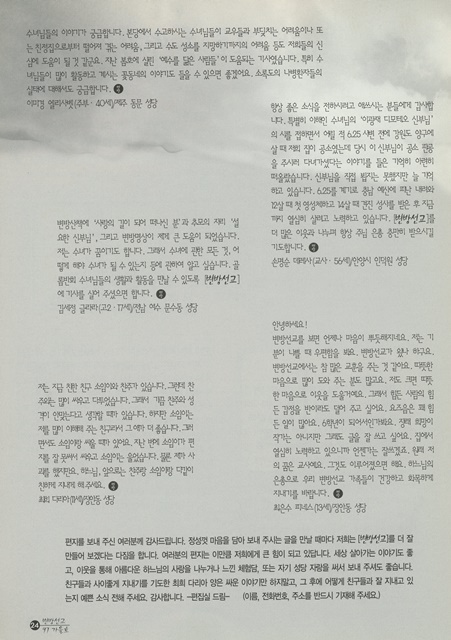 수녀님들의 이야기가 궁금합니다. 본당에서 수고하시는 수녀님들이 교우들과 부딪치는 어려움이나 또
는 친정집으로부터 떨어져 겪는 어려움, 그리고 수도 성소를 지망하기까지의 어려움 등도 저희들의 신
앙에 도움이 될 것 같군요. 지난 봄호에 실린 '예수를 닮은 사람들'이 도움되는 기사였습니다. 특히 수
녀님들이 많이 활동하고 계시는 꽃동네의 이야기도 들을 수 있으면 좋겠어요. 소록도의 나병환자들의
실태에 대해서도 궁금합니다.
이미경 엘리사벳(주부·40세)/제주 동문 성당
항상 좋은 소식을 전하시려고 애쓰시는 분들에게 감사합
니다. 특별히 이해인 수녀님의 '이광재 디모테오 신부님'
의 시를 접하면서 어릴 적 6.25 사변 전에 강원도 양구에
살 때 저희 집이 공소였는데 당시 이 신부님이 공소 판공
을 주시러 다녀가셨다는 이야기를 들은 기억이 아련히
떠올랐습니다. 신부님을 직접 뵙지는 못했지만 늘 기억
하고 있습니다. 6.25를 계기로 충남 예산에 떠난 내려와
12살 때 첫 영성체하고 14살 때 견진 성사를 받은 후 지금
까지 열심히 살려고 노력하고 있습니다. [변방선교]를
더 많은 이웃과 나누며 항상 주님 은총 충만히 받으시길
기도합니다.
손명순 데레사(교사·56세)/안양시 인덕원 성당
변방산책에 '사랑의 길이 되어 떠나신 분'과 추모의 자리 '설
요한 신부님', 그리고 변방영상이 제게 큰 도움이 되었습니다.
저는 수녀가 꿈이기도 합니다. 그래서 수녀에 관한 모든 것, 어
떻게 해야 수녀가 될 수 있는지 등에 관하여 알고 싶습니다. 골
롬반회 수녀님들의 생활과 활동을 만날 수 있도록 [변방선교]
에 기사를 실어 주셨으면 합니다.
김세정 글라라(고2·17세)/전남 여수 문수동 성당
안녕하세요!
변방선교를 보면 언제나 마음이 뿌듯해지네요. 저는 기
분이 나쁠 때 우편함을 봐요. 변방선교가 왔나 하구요.
변방선교에서는 참 많은 교훈을 주는 것 같아요. 따뜻한
마음으로 많이 도와 주는 분도 많고요. 저도 크면 따뜻
한 마음으로 이웃을 도울거예요. 그래서 힘든 사람의 힘
든 감정을 반이라도 덜어 주고 싶어요. 요즈음은 꽤 힘
든 일이 많아요. 6학년이 되어서인가봐요. 장래 희망이
작가는 아니지만 그래도 글을 잘 쓰고 싶어요. 집에서
열심히 노력하고 있으니까 언젠가는 잘쓰겠죠. 원래 저
의 꿈은 교사예요. 그것도 이루어졌으면 해요. 하느님의
은총으로 우리 변방선교 가족들이 건강하고 화목하게
지내기를 바랍니다.
최은수 피데스(13세)/장안동 성당
저는 지금 친한 친구 소임이와 찬주가 있습니다. 그런데 찬
주와는 많이 싸우고 다퉜었습니다. 그래서 가끔 찬주와 성
격이 안맞는다고 생각할 때가 있습니다. 하지만 소임이는
저를 많이 이해해 주는 친구라서 그 애가 더 좋습니다. 그러
면서도 소임이랑 싸울 때가 있어요. 지난 번에 소임이가 편
지를 잘 못써서 싸우고 소임이는 울었습니다. 물론 제가 사
과를 했지만요. 하느님, 앞으로는 찬주랑 소임이랑 다같이
친하게 지내게 해 주세요.
최희 다리아(11세)/장안동 성당
편지를 보내 주신 여러분께 감사드립니다. 정성껏 마음을 담아 보내 주시는 글을 만날 때마다 저희는 [변방선교]를 더 잘
만들어 보겠다는 다짐을 합니다. 여러분의 편지는 이만큼 저희에게 큰 힘이 되고 있답니다. 세상 살아가는 이야기도 좋
고, 이웃을 통해 아름다운 하느님의 나라가 느껴지거나 느낀 체험담, 또는 자기 성당 자랑을 써서 보내 주셔도 좋습니다.
친구들과 사이좋게 지내기를 기도한 최희 다리아 양은 싸운 이야기만 하지말고, 그 후에 어떻게 친구들과 잘 지내고 있
는지 예쁜 소식 전해 주세요. 감사합니다. -편집실 드림- (이름, 전화번호, 주소를 반드시 기재해 주세요.)
24 변방선교
97 가을호